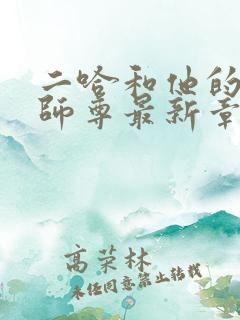 二哈和他的
師尊最新章
高荣林
未经同意禁止转载